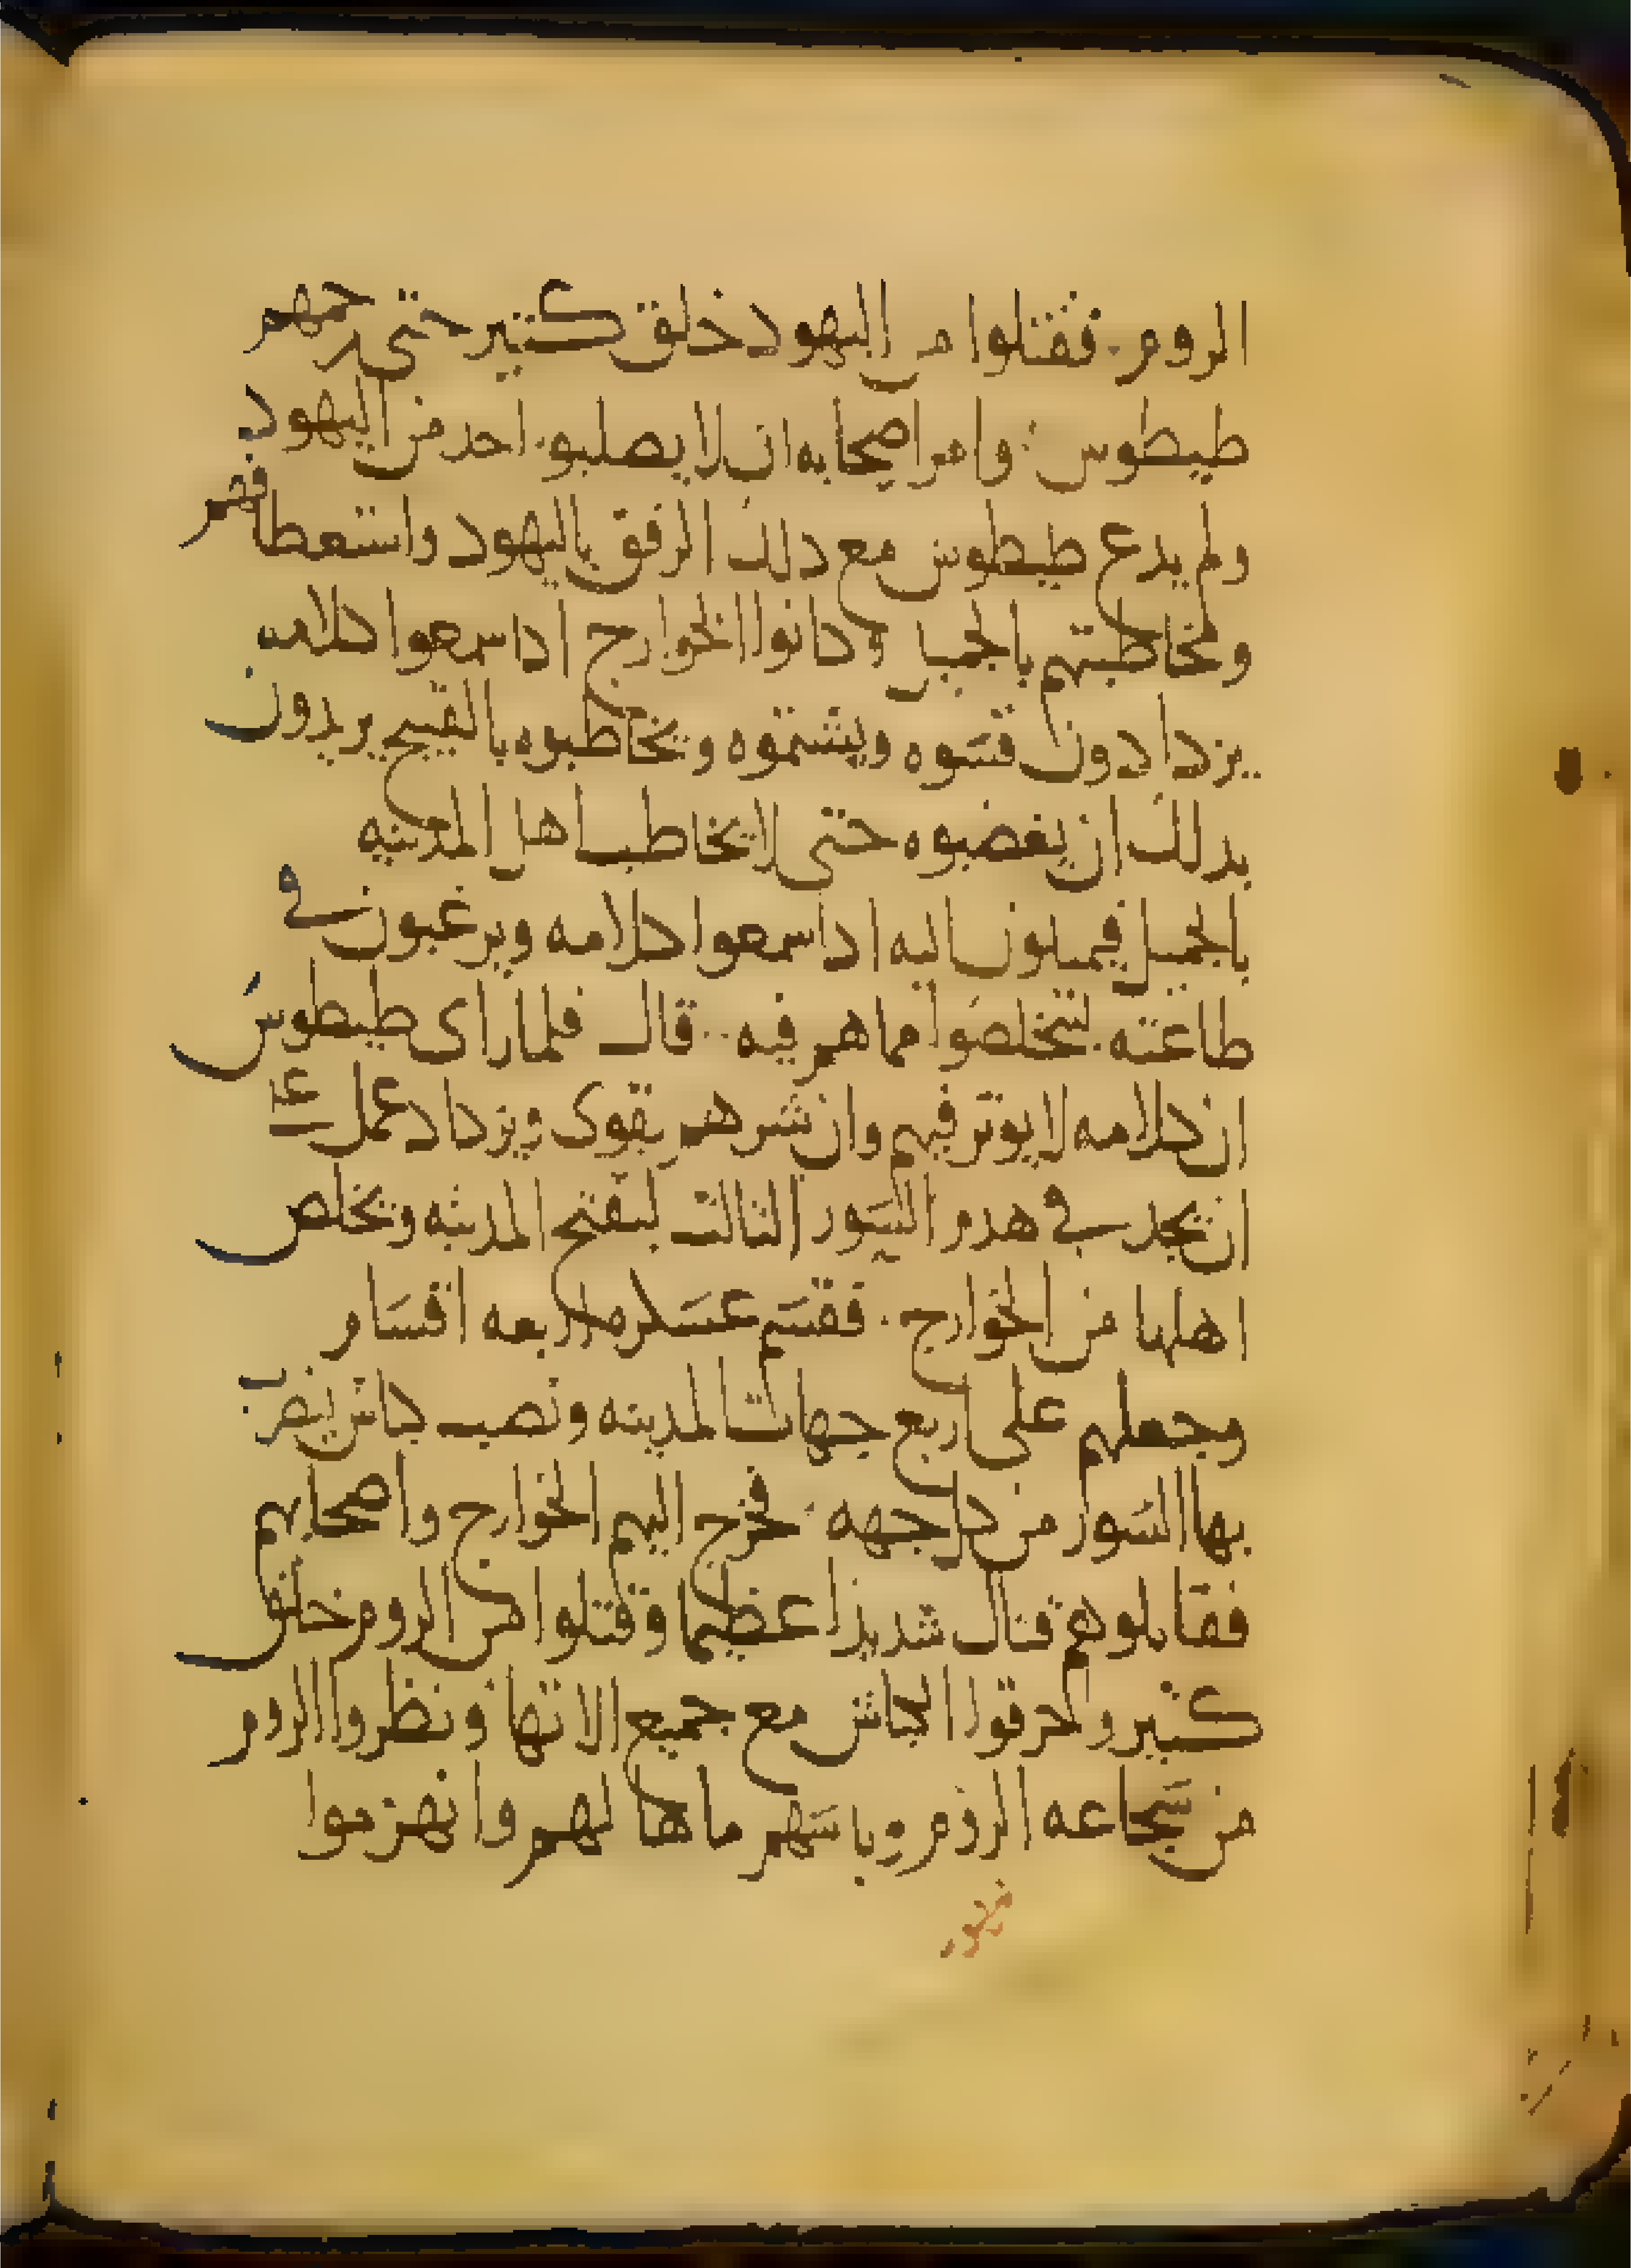 الروم. فقتلوا من اليهود خلق كتير حتى رحمهم
طيطوس. وامر اصحابه ان لا يصلبو. احد من اليهود
ولم يدع طيطوس مع دلك الرفق باليهود واستعطافهم
ومخاطبتهم بالجميل وكانوا الخوارج ادا سمعوا كلامه
يزدادون قسوه ويشتموه ويخاطبوه بالقبيح يريدون
بدلك ان يغضبوه حتى لا يخاطب اهل المدينه
بالجميل فيميلون اليه ادا سمعوا كلامه ويرغبون في
طاعته. لتتخلصوا مما هم فيه.. قال فلما راى طيطوس
ان كلامه لا يوتر فيهم وان شرهم يقوى ويزداد عمل على
ان يجد في هدم السور التالت ليفتح المدينه ويخلص
اهلها من الخوارج. فقسم عسكره اربعه اقسام
وجعلهم على اربع جهات المدينه ونصب كباش ينضرب
بها السور من كل جهه. فخرج اليهم الخوارج واصحابهم
فقاتلوهم قتال شديدا عظيما وقتلوا من الروم خلق
كتير واحرقوا الكباش مع جميع الاتها ونظروا الروم
من شجاعه الروم وباسهم ما هالهم وانهزموا